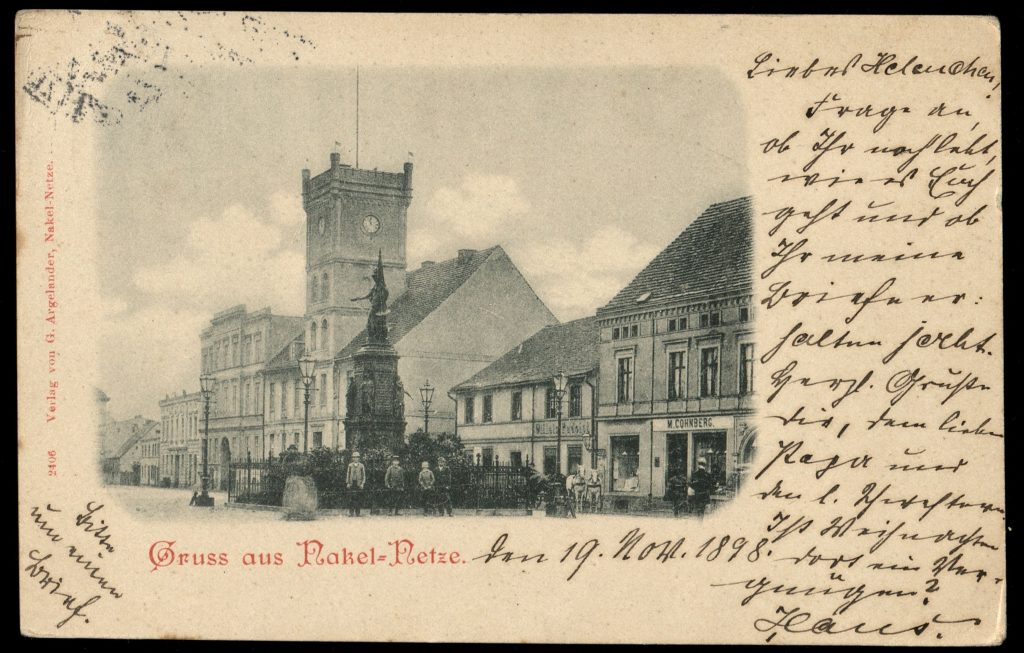 Liebes Helenchen!
Frage an,
ob Ihr noch lebt,
wie es Euch
geht und ob
Ihr meine
Briefe er:
halten habt.
Herzl. Grüße
Dir, dem lieben
Papa und
den l. Schwestern.
Ist Weihnachten
dort ein Ver-
gnügen?
Hans.
M. COHNBERG.
Gruss aus Nakel-Netze.
den 19. Nov. 1898.
Bitte
um einen
Brief.
2406 Verlag von G. Argelander, Nakel-Netze.